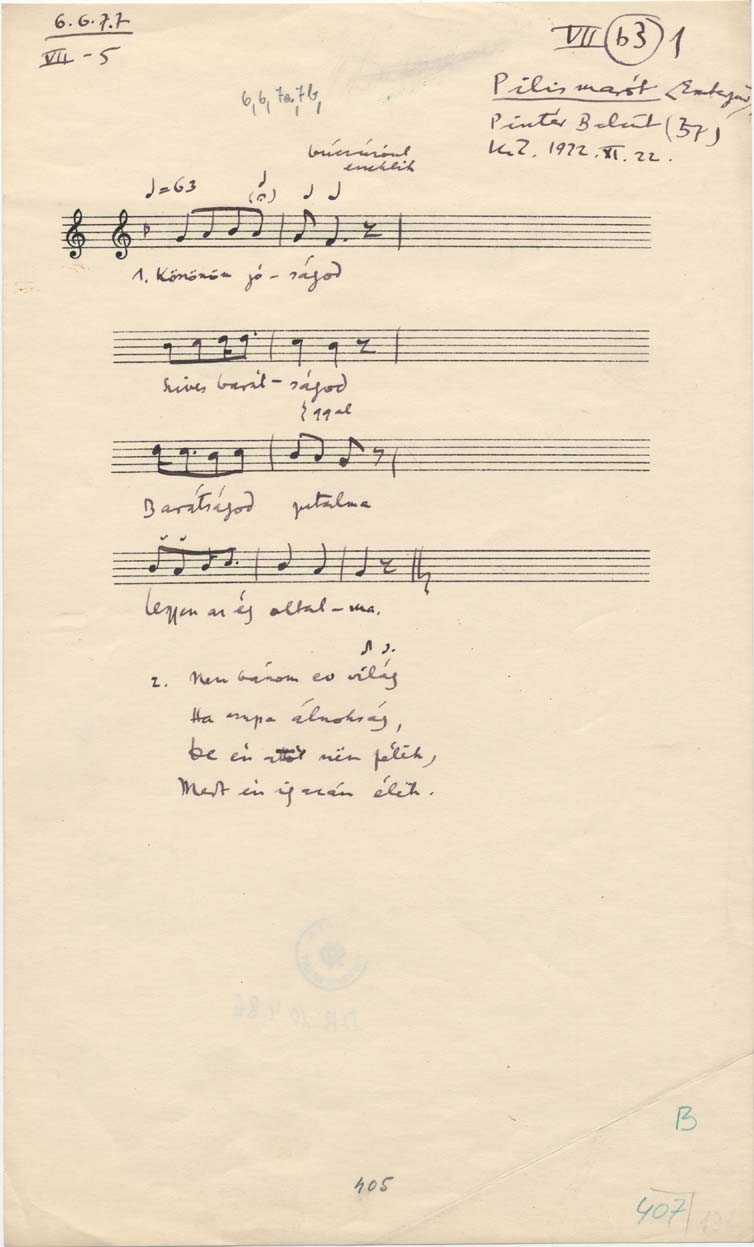 6.6.7.7
VII - 5
VII b3 1
Pilismarót (Esztergom)
Pintér Bálint (37)
1922. XI. 22.
6, 6, 7a, 7b,
búcsúzóul
éneklik
♩=63
1. Köszönöm jó - ságod
Szives barát - ságod
ggal
Barátságod jutalma
Legyen az ég oltal - ma.
2. Nem bánom ez világ
Ha csupa álnokság,
De én attól nem félek,
Mert én igazán élek.
B
405
407